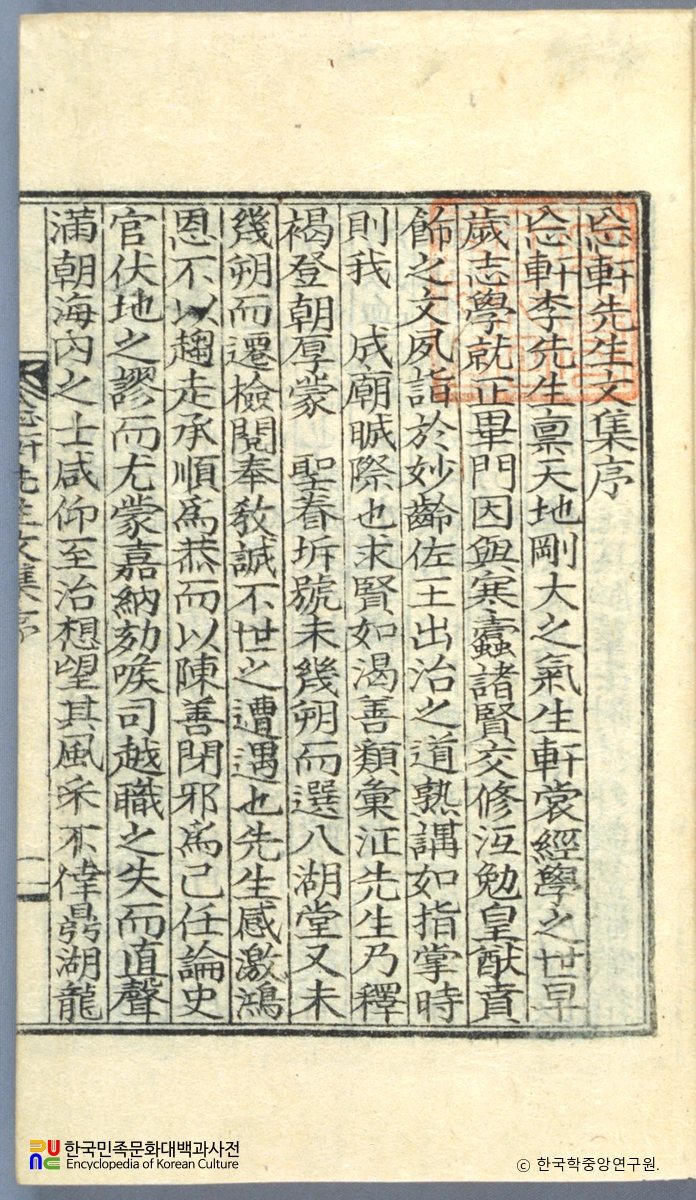 忘軒先生文集序
忘軒李先生禀天地剛大之氣生軒裳經學之世早
歲志學就正畢門因與寒蠹諸賢交修沍勉皇猷賁
飾之文夙詣於妙齡佐王出治之道熟講如指掌時
則我 成廟晠際也求賢如渴善類彙征先生乃釋
褐登朝厚蒙 聖眷坼號未幾朔而選入湖堂又未
幾朔而遷檢閱奉敎誠不世之遭遇也先生感激鴻
恩不以趨走承順爲恭而以陳善閉邪爲己任論史
官伏地之謬而尤蒙嘉納劾喉司越職之失而直聲
滿朝海內之士咸仰至治想望其風采不偉鼎湖龍
忘軒先生文集序
한국민족문화대백과사전
Encyclopedia of Korean Culture
ⓒ 한국학중앙연구원.